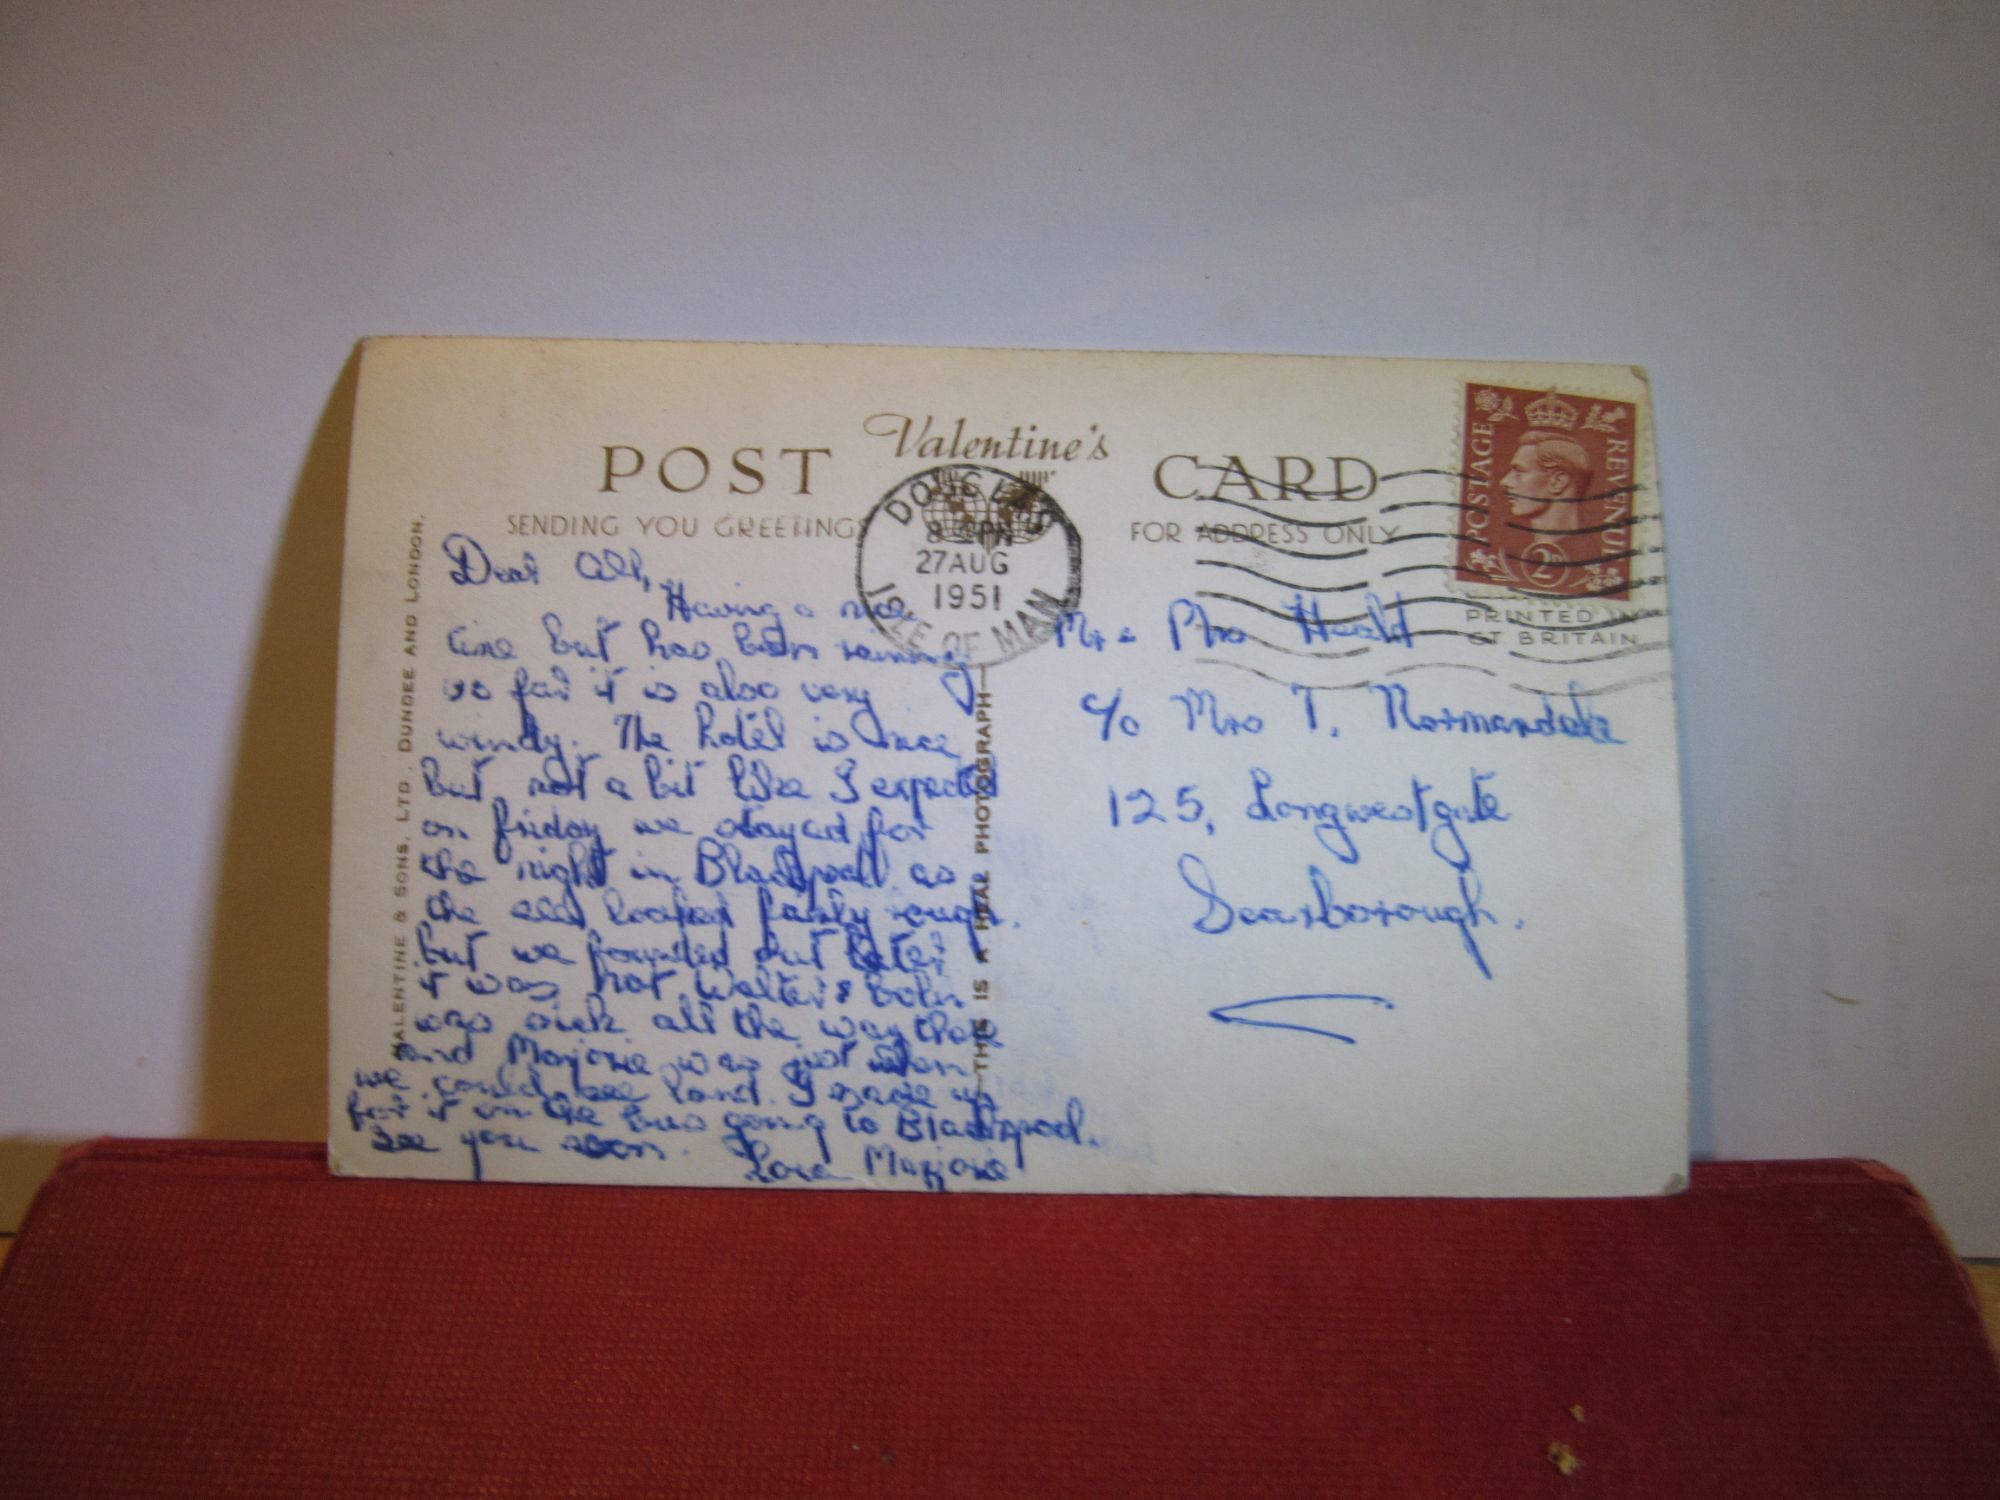 Valentine's
POST CARD
SENDING YOU GREETINGS
FOR ADDRESS ONLY
DOUGLAS
8 PM
27 AUG
1951
ISLE OF MAN
POSTAGE REVENUE
2D
PRINTED IN
GT BRITAIN
VALENTINE & SONS, LTD., DUNDEE AND LONDON.
THIS IS A REAL PHOTOGRAPH
Dear All,
Having a nice
time but has been raining
so far it is also very
windy. The hotel is nice
but not a bit like I expected
on friday we stayed for
the night in Blackpool as
the sea looked fairly rough.
but we founded out later
it was not Walter &
was sick all the way there
and Marjorie was just when
we could see land. I made up
for it in the bus going to Blackpool.
See you soon. Love Marjorie
Mr & Mrs Heald
c/o Mrs T. Normandale
125, Longwestgate
Scarborough.